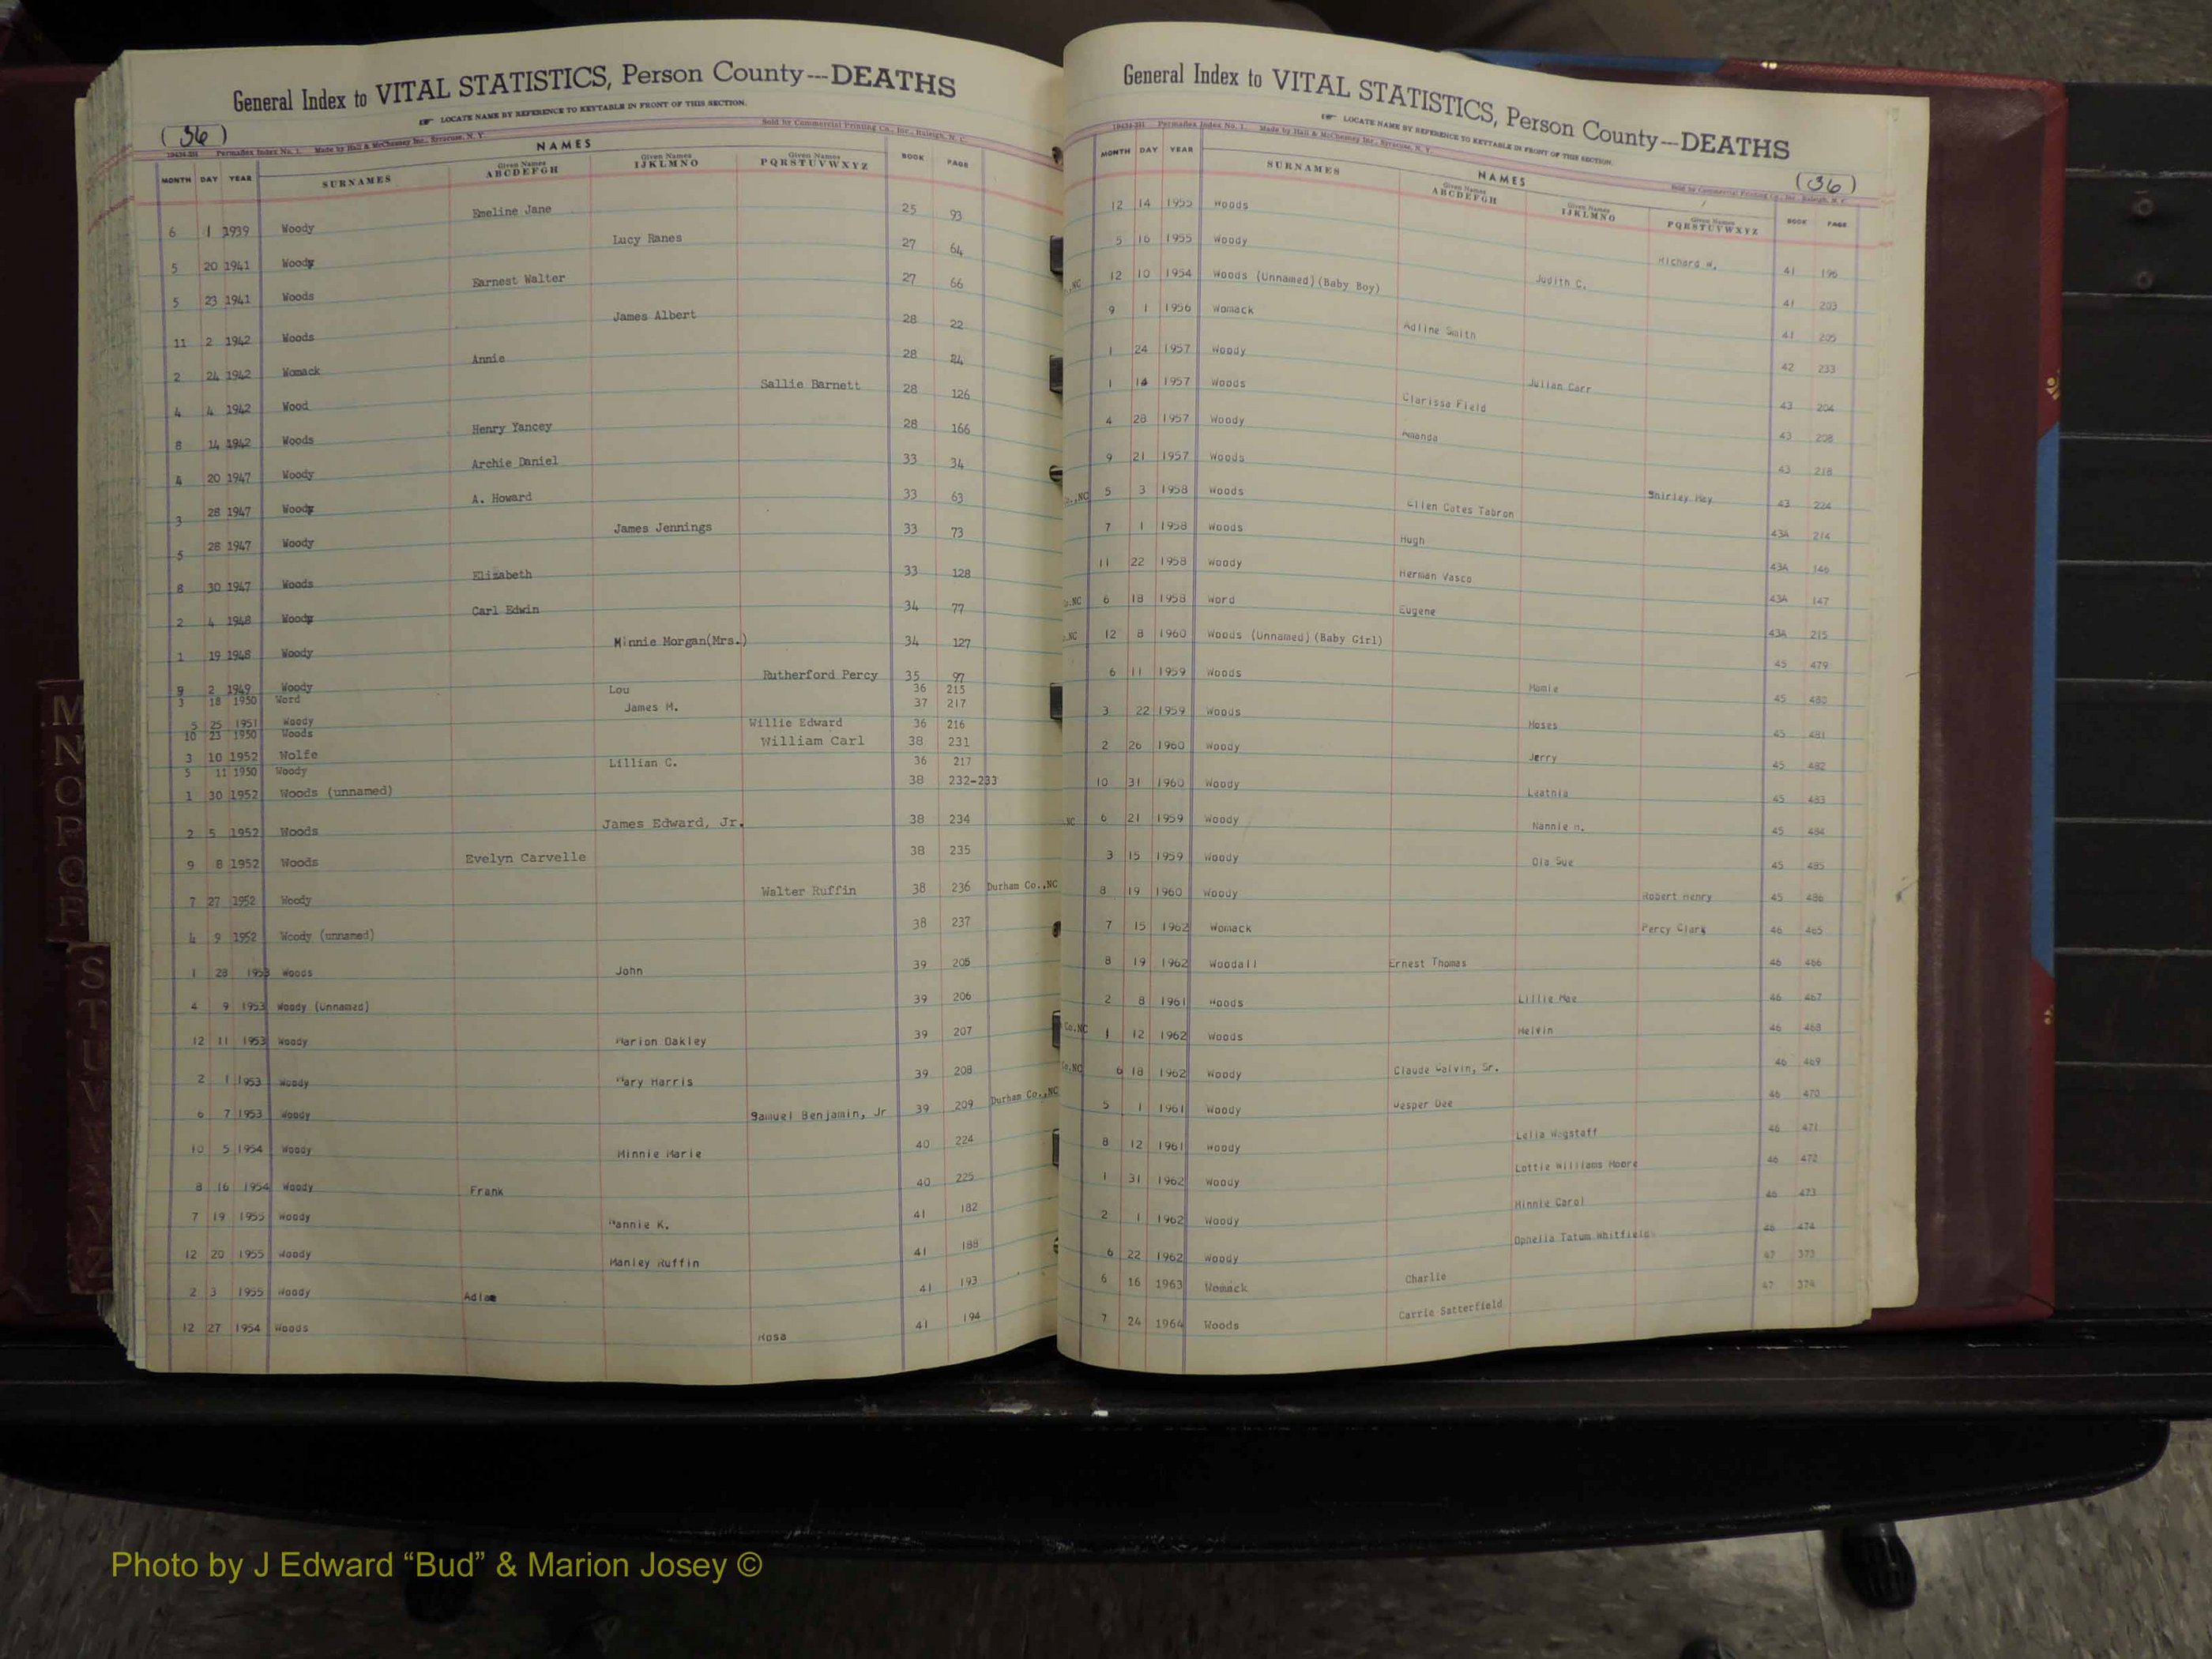 General Index to VITAL STATISTICS, Person County---DEATHS
LOCATE NAME BY REFERENCE TO KEYTABLE IN FRONT OF THIS SECTION.
(36)
Permaflex Index No. 1. Made by Hall & McChesney Inc., Syracuse, N. Y. Sold by Commercial Printing Co., Inc., Raleigh, N. C.
NAMES
MONTH DAY YEAR SURNAMES Given Names ABCDEFGH Given Names IJKLMNO Given Names PQRSTUVWXYZ BOOK PAGE
6 1 1939 Woody Emeline Jane 25 93
5 20 1941 Woody Lucy Ranes 27 64
5 23 1941 Woods Earnest Walter 27 66
11 2 1942 Woods James Albert 28 22
2 24 1942 Womack Annie 28 24
4 4 1942 Wood Sallie Barnett 28 126
8 14 1942 Woods Henry Yancey 28 166
4 20 1947 Woody Archie Daniel 33 34
3 28 1947 Woody A. Howard 33 63
5 28 1947 Woody James Jennings 33 73
8 30 1947 Woods Elizabeth 33 128
2 4 1948 Woody Carl Edwin 34 77
1 19 1948 Woody Minnie Morgan(Mrs.) 34 127
9 2 1949 Woody Rutherford Percy 35 97
3 18 1950 Word Lou 36 215
5 25 1951 Woody James M. 37 217
10 23 1950 Woods Willie Edward 36 216
3 10 1952 Wolfe William Carl 38 231
5 11 1950 Woody Lillian C. 36 217
1 30 1952 Woods (unnamed) 38 232-233
2 5 1952 Woods James Edward, Jr. 38 234
9 8 1952 Woods Evelyn Carvelle 38 235
7 27 1952 Woody Walter Ruffin 38 236 Durham Co.,NC
4 9 1952 Woody (unnamed) 38 237
1 28 1953 Woods John 39 205
4 9 1953 Woody (Unnamed) 39 206
12 11 1953 Woody Marion Oakley 39 207
2 1 1953 Woody Mary Harris 39 208
6 7 1953 Woody Samuel Benjamin, Jr 39 209 Durham Co.,NC
10 5 1954 Woody Minnie Marie 40 224
8 16 1954 Woody Frank 40 225
7 19 1955 Woody Nannie K. 41 182
12 20 1955 Woody Manley Ruffin 41 188
2 3 1955 Woody 41 193
12 27 1954 Woods Rosa 41 194
M
N
O
P
Q
R
S
T
U
V
W
X
Y
Z
General Index to VITAL STATISTICS, Person County---DEATHS
LOCATE NAME BY REFERENCE TO KEYTABLE IN FRONT OF THIS SECTION.
Permaflex Index No. 1. Made by Hall & McChesney Inc., Syracuse, N. Y. Sold by Commercial Printing Co., Inc., Raleigh, N. C.
(36)
NAMES
MONTH DAY YEAR SURNAMES Given Names ABCDEFGH Given Names IJKLMNO Given Names PQRSTUVWXYZ BOOK PAGE
12 14 1955 Woods Richard W. 41 196
5 16 1955 Woody Judith C. 41 203
12 10 1954 Woods (Unnamed)(Baby Boy) 41 205
9 1 1956 Womack Adline Smith 42 233
1 24 1957 Woody Julian Carr 43 204
1 14 1957 Woods Clarissa Field 43 208
4 28 1957 Woody Amanda 43 218
9 21 1957 Woods Shirley May 43 224
5 3 1958 Woods Ellen Cates Tabron 43A 214
7 1 1958 Woods Hugh 43A 146
11 22 1958 Woody Herman Vasco 43A 147
6 18 1958 Word Eugene 43A 215
12 8 1960 Woods (Unnamed)(Baby Girl) 45 479
6 11 1959 Woods Mamie 45 480
3 22 1959 Woods Moses 45 481
2 26 1960 Woody Jerry 45 482
10 31 1960 Woody 45 483
6 21 1959 Woody Nannie 45 484
3 15 1959 Woody Ola Sue 45 485
8 19 1960 Woody Robert Henry 45 486
7 15 1962 Womack Percy Clark 46 465
8 19 1962 Woodall Ernest Thomas 46 466
2 8 1961 Woods Lillie Mae 46 467
1 12 1962 Woods Melvin 46 468
6 18 1962 Woody Claude Calvin, Sr. 46 469
5 1 1961 Woody Vesper Dee 46 470
8 12 1961 Woody Lelia Wagstaff 46 471
1 31 1962 Woody Lottie Williams Moore 46 472
2 1 1962 Woody Minnie Carol 46 473
6 22 1962 Woody Ophelia Tatum Whitfield 46 474
6 16 1963 Womack Charlie 47 373
7 24 1964 Woods Carrie Satterfield 47 374
Photo by J Edward “Bud” & Marion Josey ©